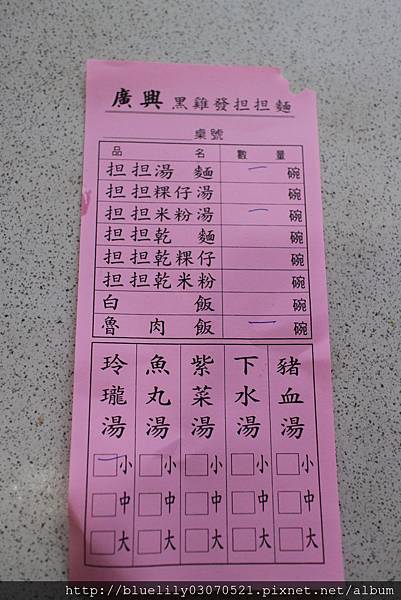 廣興 黑雞發担担麵
桌號
品名 數量
担担湯麵 一 碗
担担粿仔湯 碗
担担米粉湯 一 碗
担担乾麵 碗
担担乾粿仔 碗
担担乾米粉 碗
白飯 碗
魯肉飯 一 碗
玲瓏湯 魚丸湯 紫菜湯 下水湯 豬血湯
一小 小 小 小 小
中 中 中 中 中
大 大 大 大 大
http://bluelily03070521.pixnet.net/album